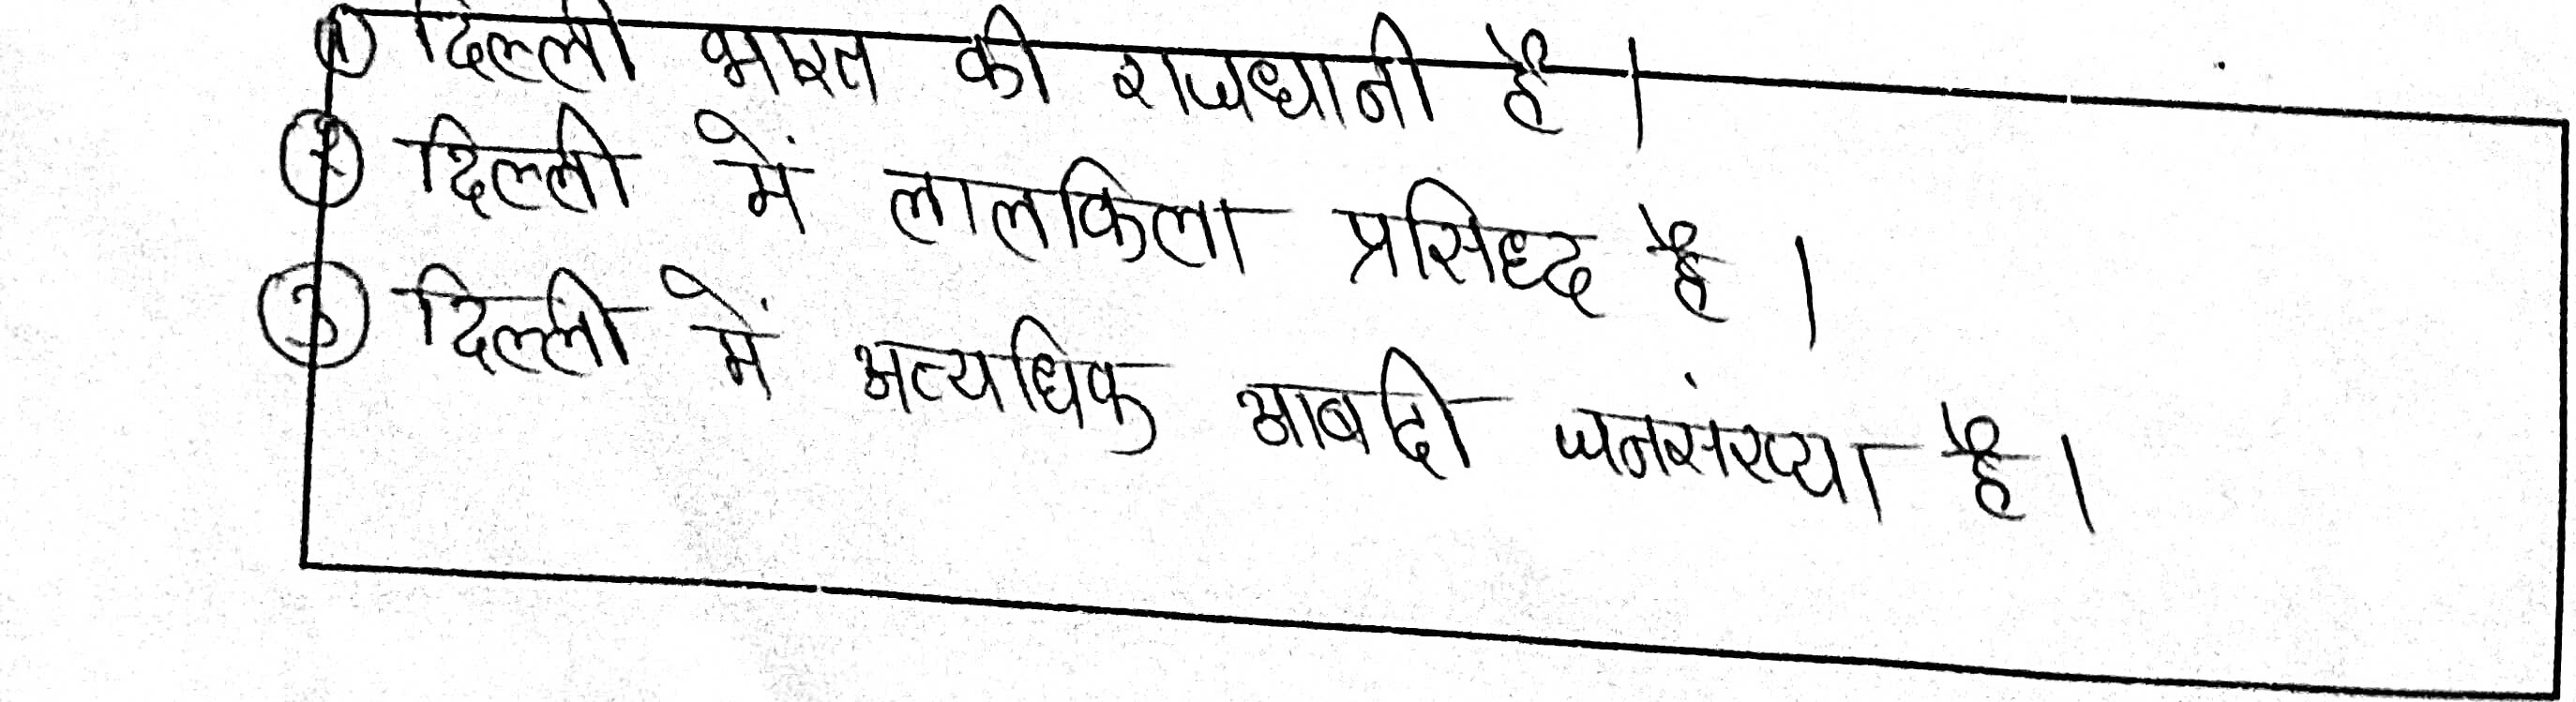 ① दिल्ली भारत की राजधानी है ।
② दिल्ली में लालकिला प्रसिध्द है ।
③ दिल्ली में अत्यधिक आबदी जनसंख्या है ।